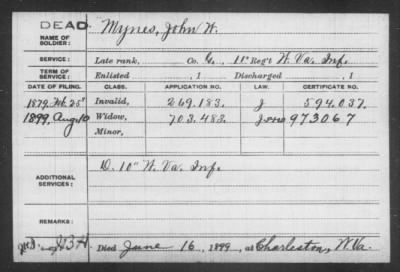 DEAD
NAME OF SOLDIER: Mynes, John W.
SERVICE: Late rank, Co. G, 11" Reg't W. Va. Inf.
TERM OF SERVICE: Enlisted , 1 Discharged , 1
DATE OF FILING. CLASS. APPLICATION NO. LAW. CERTIFICATE NO.
1879, Feb. 25" Invalid, 269.183. J 594.037.
1899, Aug. 10 Widow, 703.483. 973067
Minor,
ADDITIONAL SERVICES: D. 10" W. Va. Inf.
REMARKS:
Died June 16, 1899, at Charleston, W. Va.